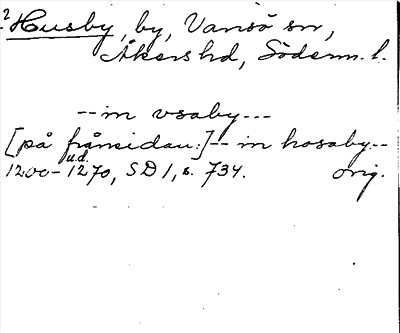 2 Husby, by, Vansö sn,
Åkers hd, Söderm. l.
--in vsaby---
[på frånsidan:]-- in hosaby--
u.d.
1200-1270, SD 1, s. 734. orig.